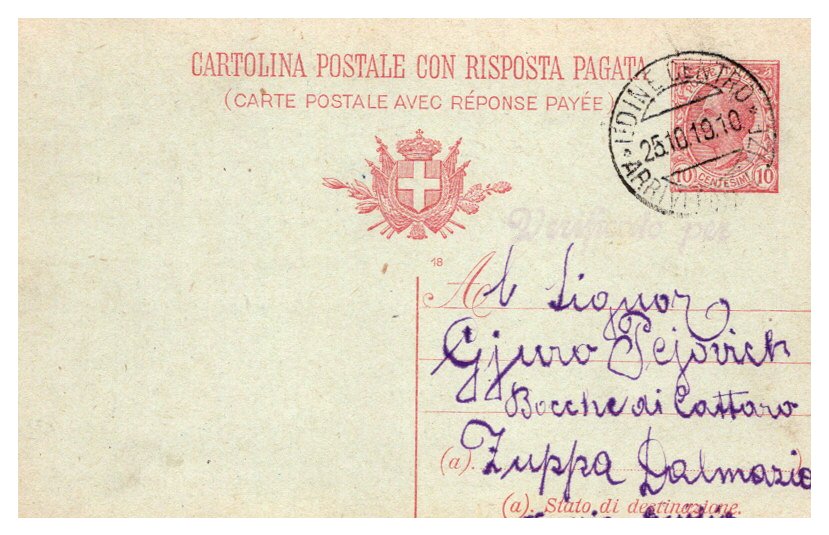 CARTOLINA POSTALE CON RISPOSTA PAGATA
(CARTE POSTALE AVEC RÉPONSE PAYÉE)
UDINE CENTRO
25.10.19.10
ARRIVI
10 CENTESIMI 10
18
Al Signor
Gjuro Pejovich
Bocche di Cattaro
(a). Zuppa Dalmazia
(a). Stato di destinazione.